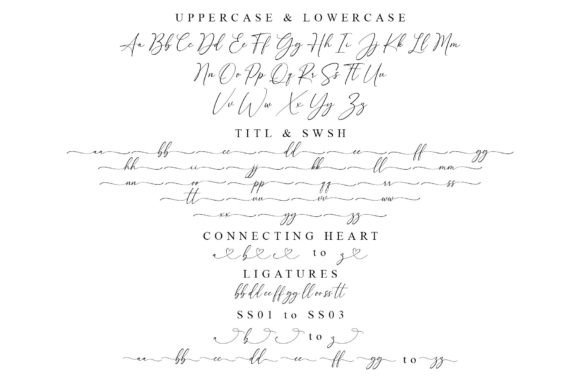 UPPERCASE & LOWERCASE
Aa Bb Cc Dd Ee Ff Gg Hh Ii Jj Kk Ll Mm
Nn Oo Pp Qq Rr Ss Tt Uu
Vv Ww Xx Yy Zz
TITL & SWSH
aa bb cc dd ee ff gg
hh ii jj kk ll mm
nn oo pp qq rr ss
tt uu vv ww
xx yy zz
CONNECTING HEART
a b c to z
LIGATURES
bb dd ee ff gg ll oo ss tt
SS01 to SS03
a b to z
aa bb cc dd ee ff gg to zz